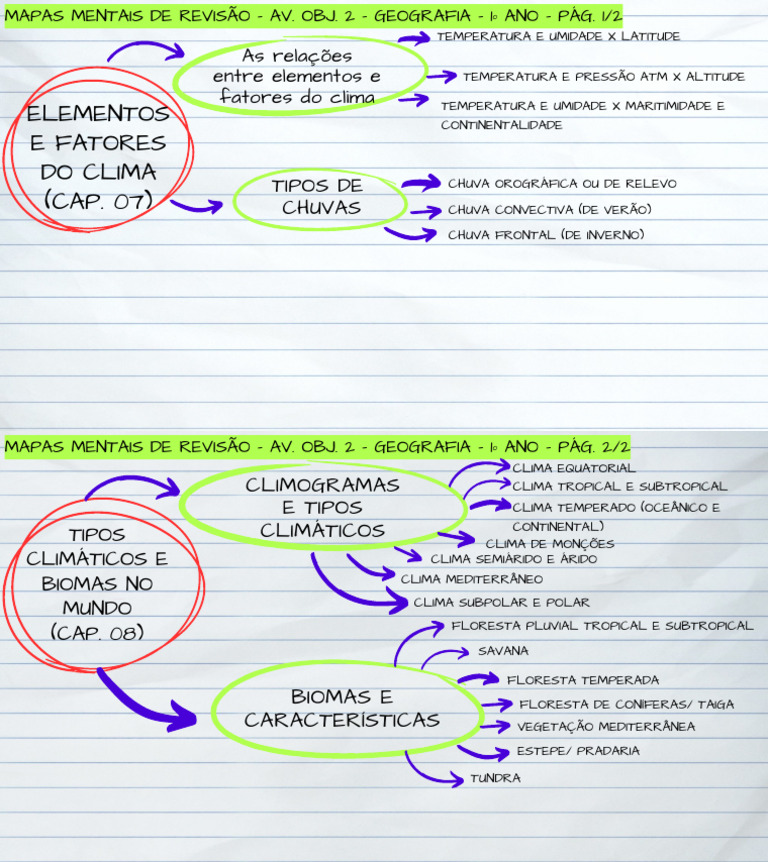 MAPAS MENTAIS DE REVISÃO - AV. OBJ. 2 - GEOGRAFIA - 1º ANO - PÁG. 1/2
As relações
entre elementos e
fatores do clima
TEMPERATURA E UMIDADE X LATITUDE
TEMPERATURA E PRESSÃO ATM X ALTITUDE
TEMPERATURA E UMIDADE X MARITIMIDADE E
CONTINENTALIDADE
ELEMENTOS
E FATORES
DO CLIMA
(CAP. 07)
TIPOS DE
CHUVAS
CHUVA OROGRÁFICA OU DE RELEVO
CHUVA CONVECTIVA (DE VERÃO)
CHUVA FRONTAL (DE INVERNO)
MAPAS MENTAIS DE REVISÃO - AV. OBJ. 2 - GEOGRAFIA - 1º ANO - PÁG. 2/2
CLIMOGRAMAS
E TIPOS
CLIMÁTICOS
CLIMA EQUATORIAL
CLIMA TROPICAL E SUBTROPICAL
CLIMA TEMPERADO (OCEÂNICO E
CONTINENTAL)
CLIMA DE MONÇÕES
CLIMA SEMIÁRIDO E ÁRIDO
CLIMA MEDITERRÂNEO
CLIMA SUBPOLAR E POLAR
TIPOS
CLIMÁTICOS E
BIOMAS NO
MUNDO
(CAP. 08)
BIOMAS E
CARACTERÍSTICAS
FLORESTA PLUVIAL TROPICAL E SUBTROPICAL
SAVANA
FLORESTA TEMPERADA
FLORESTA DE CONÍFERAS/ TAIGA
VEGETAÇÃO MEDITERRÂNEA
ESTEPE/ PRADARIA
TUNDRA